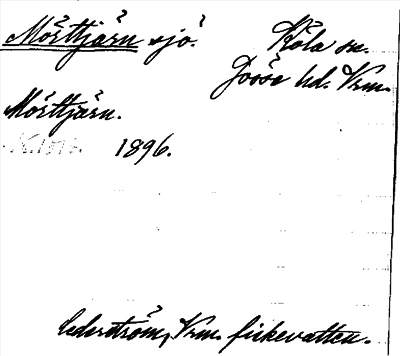 Mörttjärn sjö.
Köla sn.
Jösse hd. Vrm.
Mörttjärn.
1896.
Cederström, Vrm. fiskevatten.